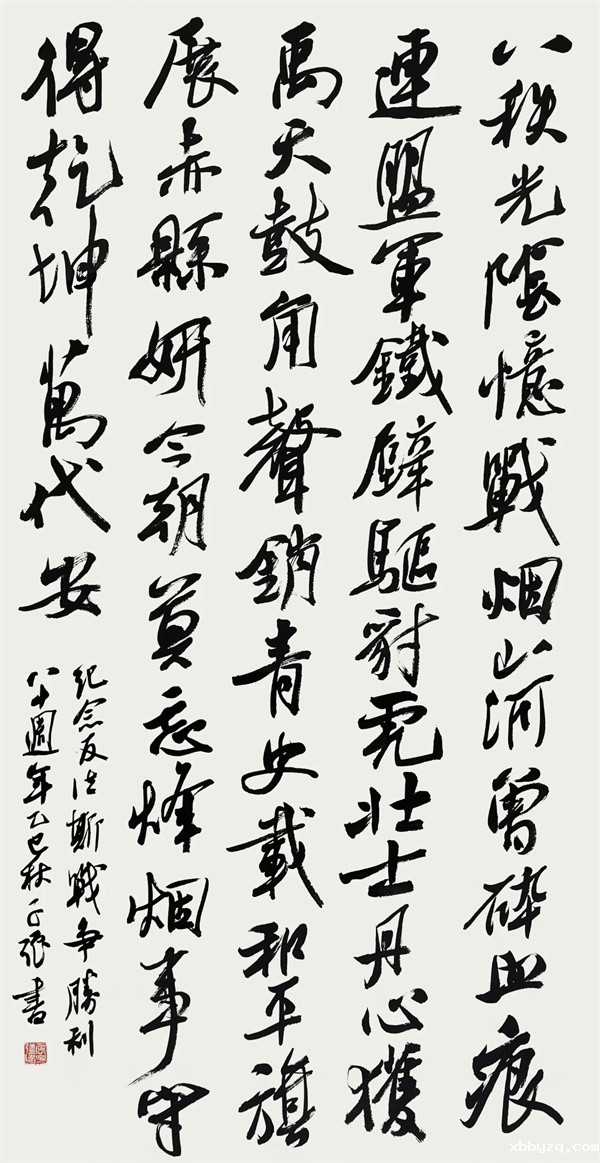 八秩光陰憶戰烟山河曾碎血痕
連盟軍鐵臂驅豺虎壯士丹心獲
禹天鼓角聲銷青史載和平旗
展赤縣妍今朝莫忘烽烟事守
得乾坤萬代安
紀念反法斯戰争勝利
八十週年乙巳秋書
xbbyzq.com